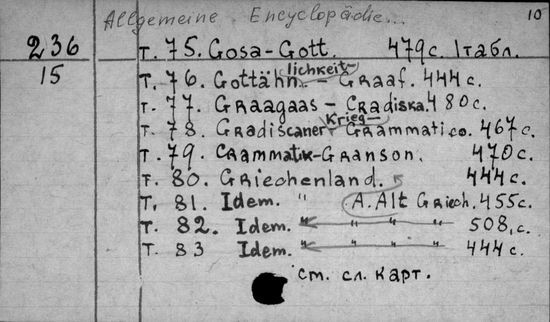 Allgemeine Encyclopädie... 10
236 т. 75. Gosa-Gott. 479с. 1табл.
15 т. 76. Gottähnlichkeit - Graaf. 444 с.
т. 77. Graagaas - Cradiska. 480с.
т. 78. Gradiscaner Krieg - Grammatico. 467с.
т. 79. Crammatik-Granson. 470с.
т. 80. Griechenland. 444с.
т. 81. Idem. " A. Alt Griech. 455с.
т. 82. Idem. " " " " 508.с.
т. 83 Idem. " " " " 444с.
см. сл. карт.